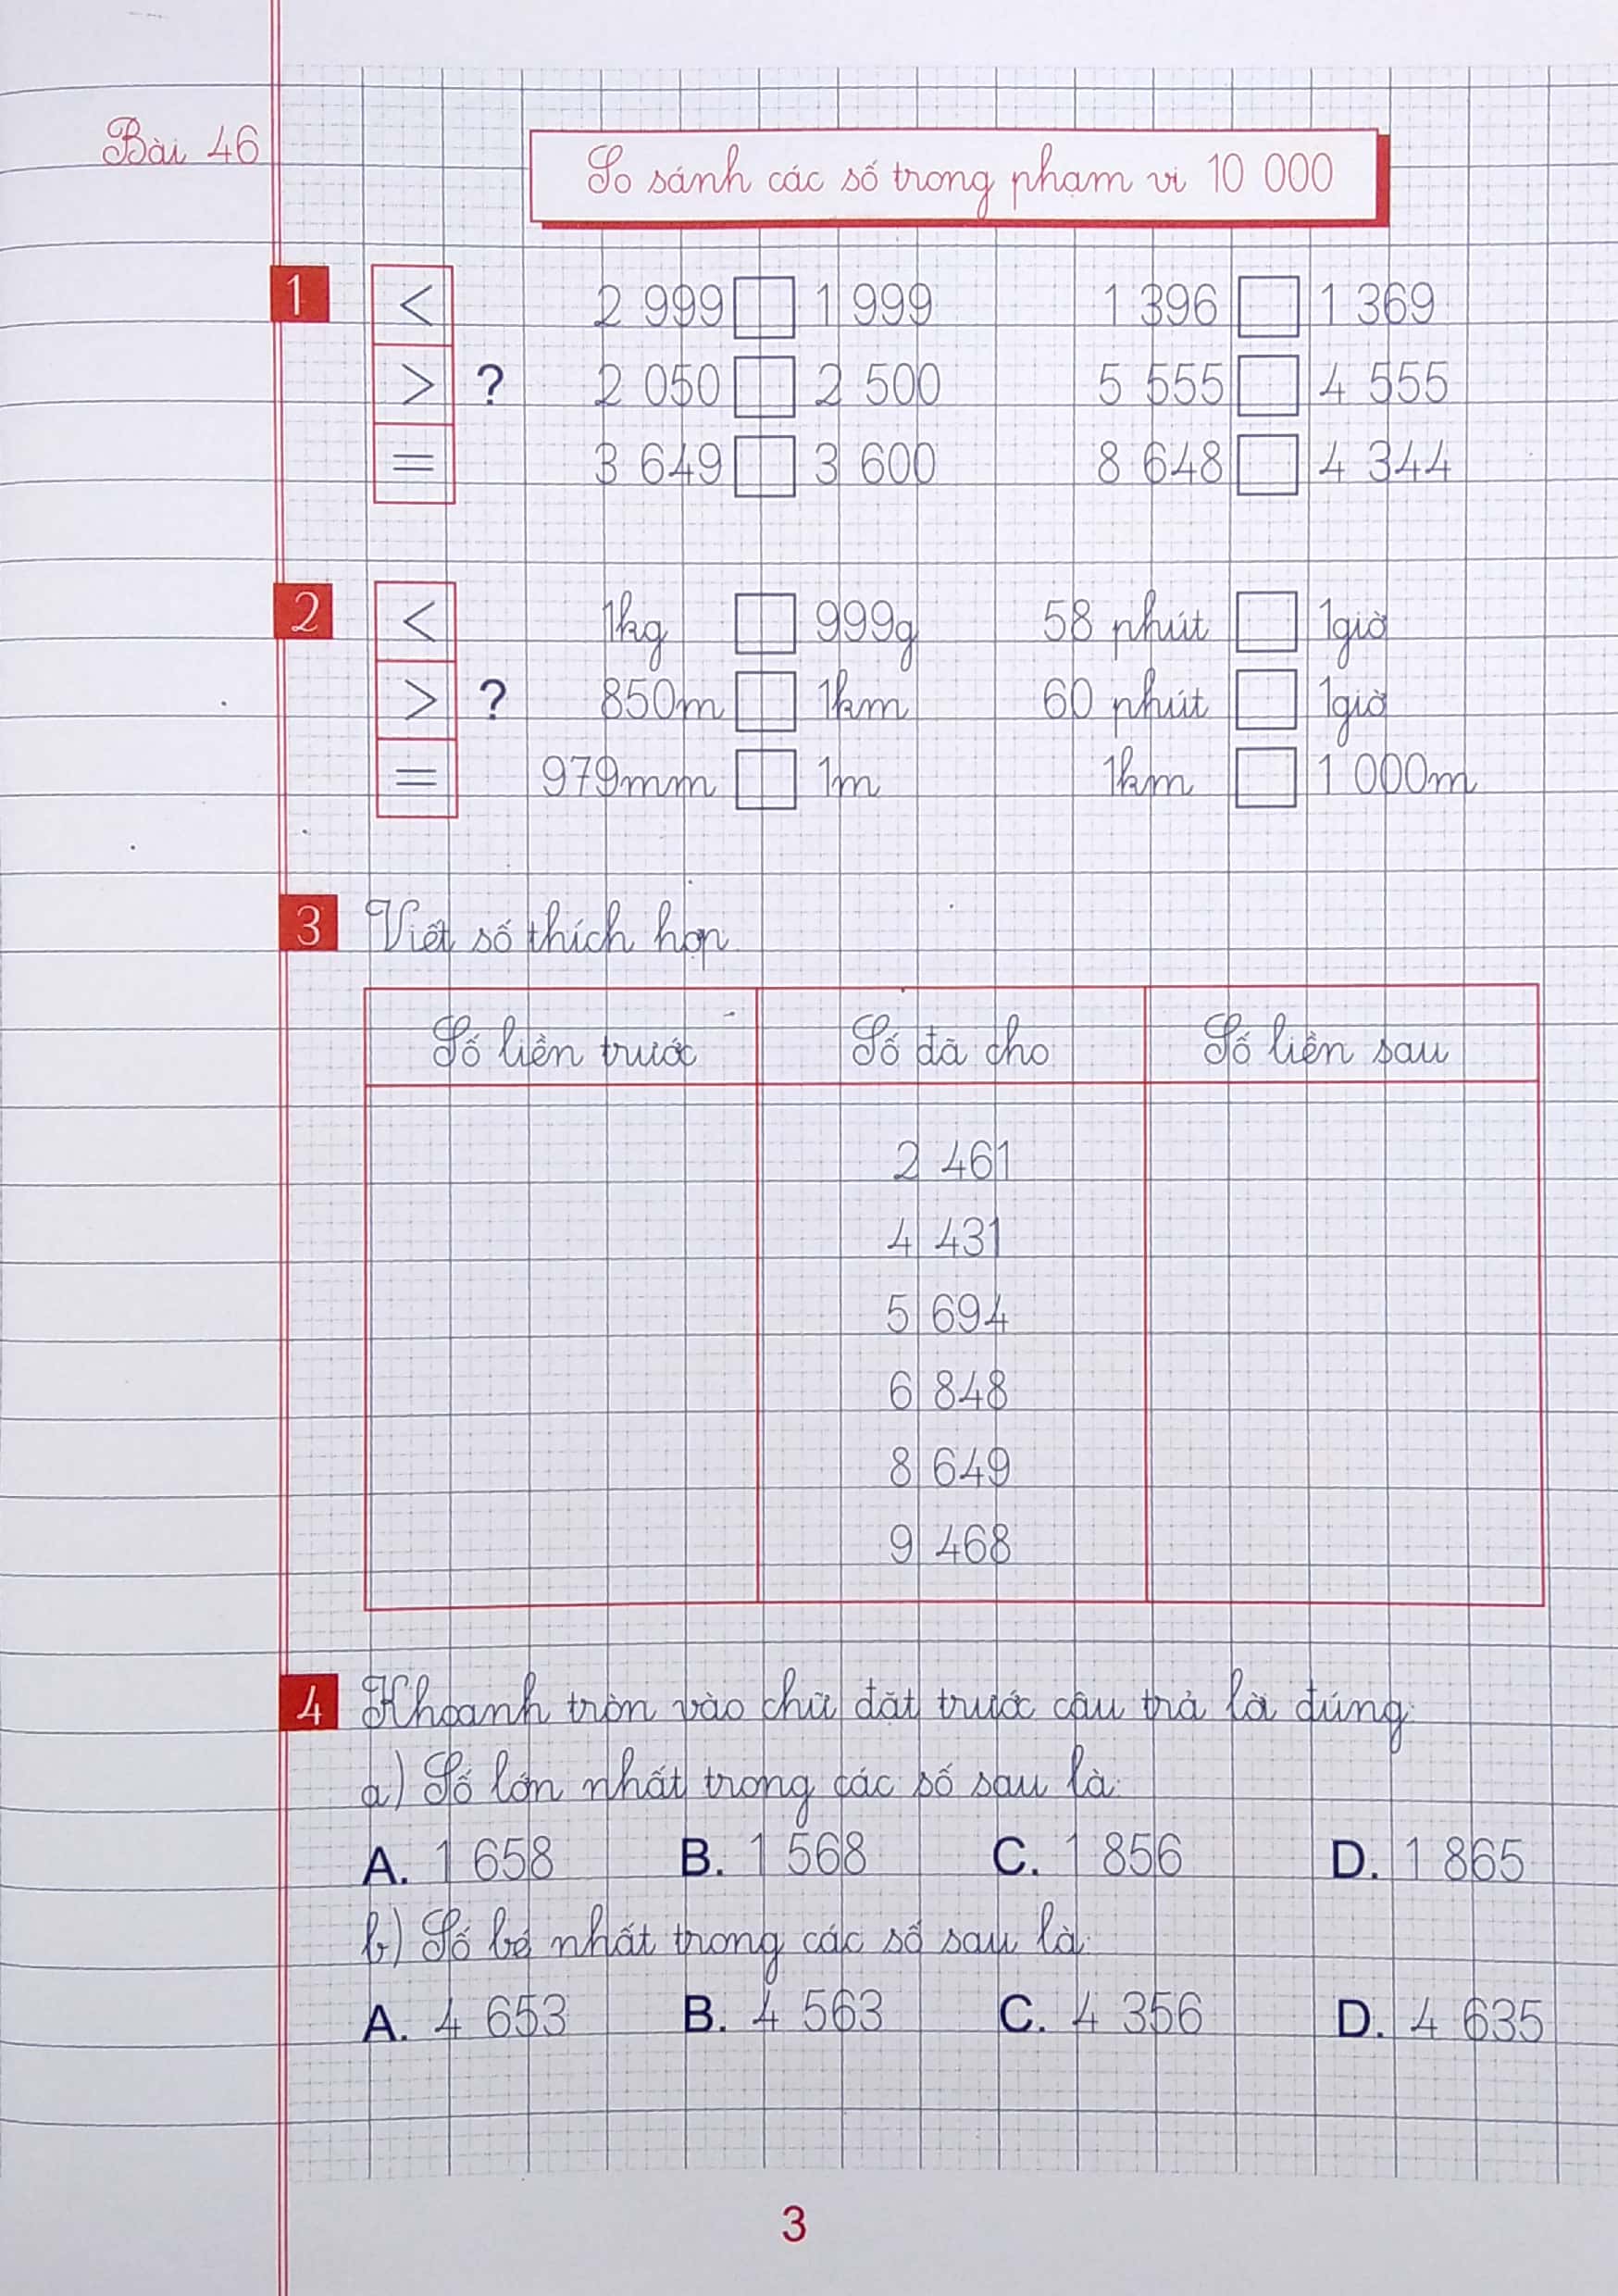 Bài 46
So sánh các số trong phạm vi 10 000
1
< 2 999 1 999 1 396 1 369
> ? 2 050 2 500 5 555 4 555
= 3 649 3 600 8 648 4 344
2
< 1kg 999g 58 phút 1giờ
> ? 850m 1km 60 phút 1giờ
= 979mm 1m 1km 1 000m
3 Viết số thích hợp
Số liền trước Số đã cho Số liền sau
2 461
4 431
5 694
6 848
8 649
9 468
4 Khoanh tròn vào chữ đặt trước câu trả lời đúng:
a) Số lớn nhất trong các số sau là:
A. 1 658 B. 1 568 C. 1 856 D. 1 865
b) Số bé nhất trong các số sau là:
A. 4 653 B. 4 563 C. 4 356 D. 4 635
3